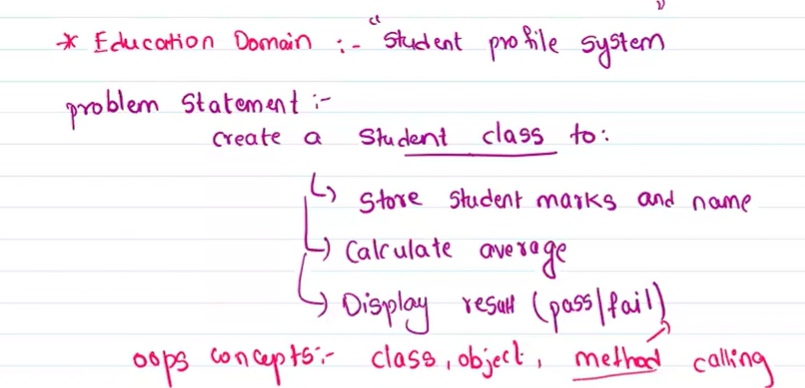 * Education Domain :- "Student profile system"
problem Statement :-
create a Student class to:
↳ Store Student marks and name
↳ Calculate average
↳ Display result (pass/fail)
oops concepts:- class, object, method calling